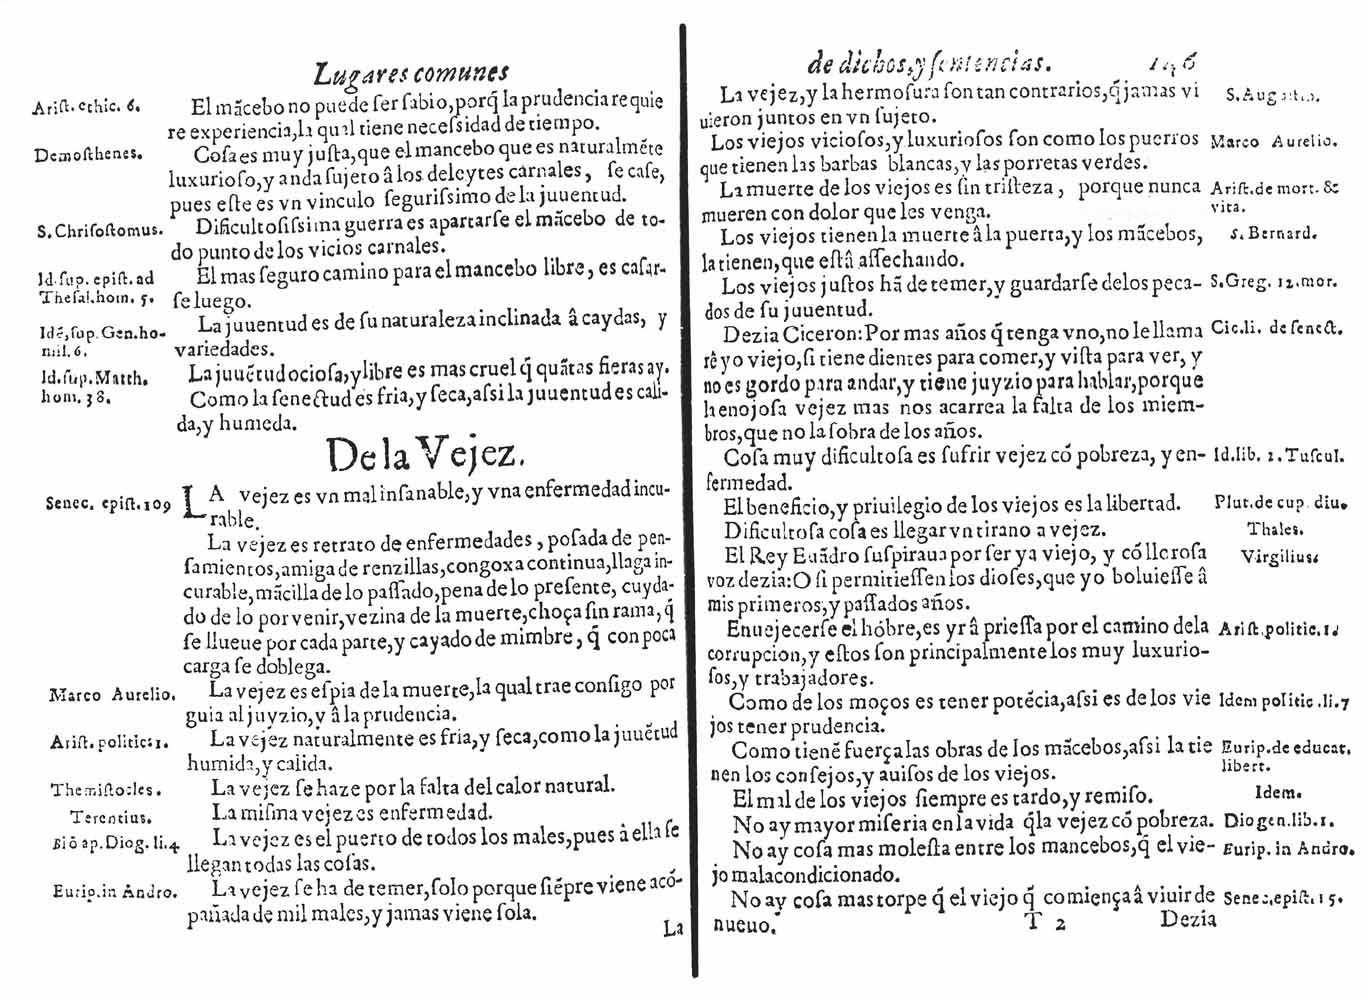 Lugares comunes
Arist. ethic. 6.
El mãcebo no puede ser sabio, porq̃ la prudencia requie
re experiencia, la qual tiene necessidad de tiempo.
Demosthenes.
Cosa es muy justa, que el mancebo que es naturalmẽte
luxurioso, y anda sujeto â los deleytes carnales, se case,
pues este es vn vinculo segurissimo de la juuentud.
S. Chrisostomus.
Dificultosissima guerra es apartarse el mãcebo de to-
do punto de los vicios carnales.
Id. sup. epist. ad
Thesal. hom. 5.
El mas seguro camino para el mancebo libre, es casar-
se luego.
Idẽ, sup. Gen. ho-
mil. 6.
La juuentud es de su naturaleza inclinada â caydas, y
variedades.
Id. sup. Matth.
hom. 38.
La juuẽtud ociosa, y libre es mas cruel q̃ quãtas fieras ay.
Como la senectud es fria, y seca, assi la juuentud es cali-
da, y humeda.
De la Vejez.
Senec. epist. 109
LA vejez es vn mal insanable, y vna enfermedad incu-
rable.
La vejez es retrato de enfermedades, posada de pen-
samientos, amiga de renzillas, congoxa continua, llaga in-
curable, mãcilla de lo passado, pena de lo presente, cuyda-
do de lo por venir, vezina de la muerte, choça sin rama, q̃
se llueue por cada parte, y cayado de mimbre, q̃ con poca
carga se doblega.
Marco Aurelio.
La vejez es espia de la muerte, la qual trae consigo por
guia al juyzio, y â la prudencia.
Arist. politic. 1.
La vejez naturalmente es fria, y seca, como la juuẽtud
humida, y calida.
Themistocles.
La vejez se haze por la falta del calor natural.
Terentius.
La misma vejez es enfermedad.
Biõ ap. Diog. li. 4
La vejez es el puerto de todos los males, pues â ella se
llegan todas las cosas.
Eurip. in Andro.
La vejez se ha de temer, solo porque siẽpre viene acõ-
pañada de mil males, y jamas viene sola.
La
de dichos, y sentencias. 146
La vejez, y la hermosura son tan contrarios, q̃ jamas vi
uieron juntos en vn sujeto.
S. Augustin.
Los viejos viciosos, y luxuriosos son como los puerros
que tienen las barbas blancas, y las porretas verdes.
Marco Aurelio.
La muerte de los viejos es sin tristeza, porque nunca
mueren con dolor que les venga.
Arist. de mort. &
vita.
Los viejos tienen la muerte â la puerta, y los mãcebos,
la tienen, que estâ assechando.
S. Bernard.
Los viejos justos hã de temer, y guardarse delos peca-
dos de su juuentud.
S. Greg. 12. mor.
Dezia Ciceron: Por mas años q̃ tenga vno, no le llama
rê yo viejo, si tiene dientes para comer, y vista para ver, y
no es gordo para andar, y tiene juyzio para hablar, porque
henojosa vejez mas nos acarrea la falta de los miem-
bros, que no la sobra de los años.
Cic. li. de senect.
Cosa muy dificultosa es sufrir vejez cõ pobreza, y en-
fermedad.
Id. lib. 1. Tuscul.
El beneficio, y priuilegio de los viejos es la libertad.
Plut. de cup. diu.
Dificultosa cosa es llegar vn tirano a vejez.
Thales.
El Rey Euãdro suspiraua por ser ya viejo, y cõ llorosa
voz dezia: O si permitiessen los dioses, que yo boluiesse â
mis primeros, y passados años.
Virgilius.
Enuejecerse el hõbre, es yr â priessa por el camino dela
corrupcion, y estos son principalmente los muy luxurio-
sos, y trabajadores.
Arist. politic. 1.
Como de los moços es tener potẽcia, assi es de los vie
jos tener prudencia.
Idem politic. li. 7
Como tienẽ fuerça las obras de los mãcebos, assi la tie
nen los consejos, y auisos de los viejos.
Eurip. de educat.
libert.
El mal de los viejos siempre es tardo, y remiso.
Idem.
No ay mayor miseria en la vida q̃ la vejez cõ pobreza.
Diogen. lib. 1.
No ay cosa mas molesta entre los mancebos, q̃ el vie-
jo malacondicionado.
Eurip. in Andro.
No ay cosa mas torpe q̃ el viejo q̃ comiença â viuir de
nueuo.
Senec. epist. 15.
T 2
Dezia